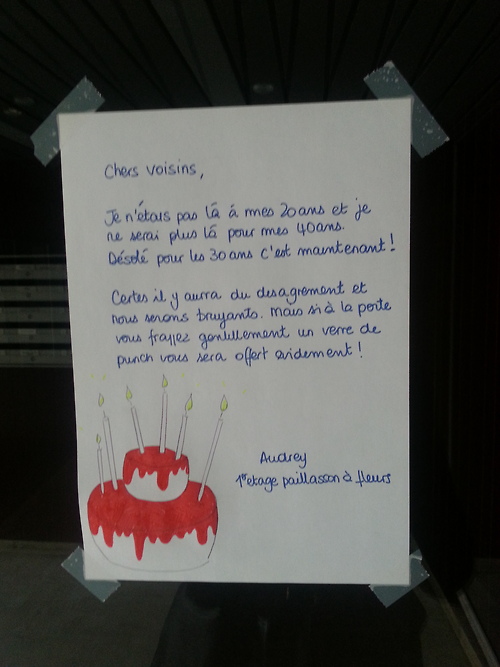 Chers voisins,
Je n'étais pas là à mes 20ans et je
ne serai plus là pour mes 40ans.
Désolé pour les 30ans c'est maintenant!
Certes il y aurra du desagrement et
nous serons bruyants. Mais si à la porte
vous frappez gentillement un verre de
punch vous sera offert evidement!
Audrey
1er etage paillasson à fleurs